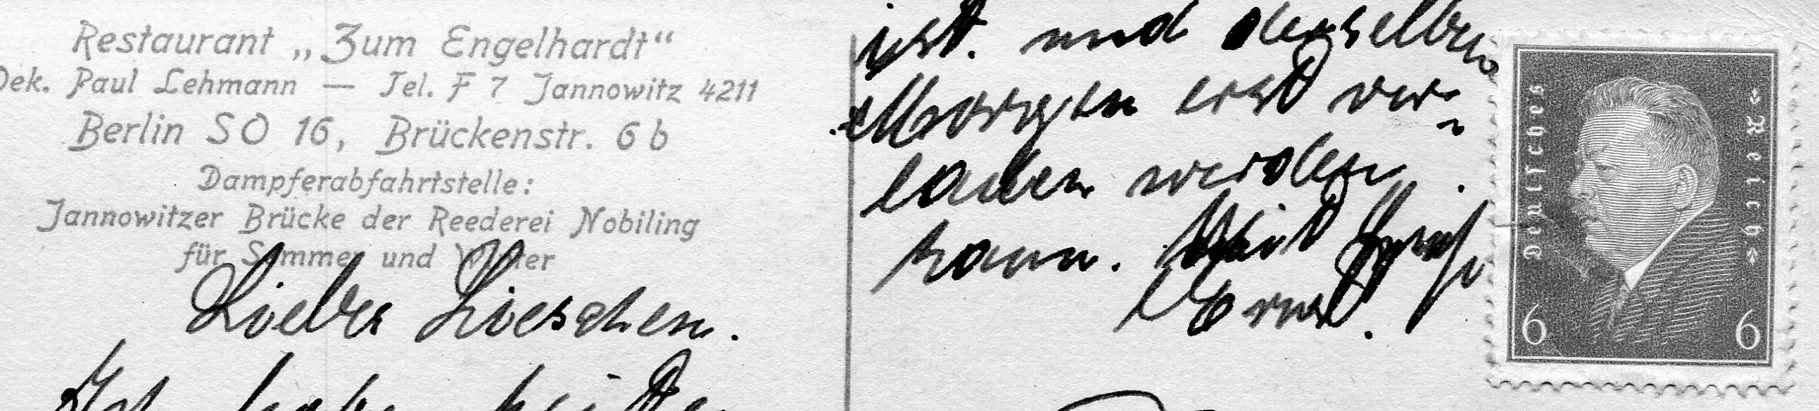 Restaurant „Zum Engelhardt“
Oek. Paul Lehmann — Tel. F 7 Jannowitz 4211
Berlin SO 16, Brückenstr. 6 b
Dampferabfahrtstelle:
Jannowitzer Brücke der Reederei Nobiling
für Sommer und Winter
Liebes Lieschen.
Ich habe heute
ist. und derselbe
Morgen erst ver-
laden werden
kann. Mit Gruß
Ernst.
Deutsches
Reich
6 6